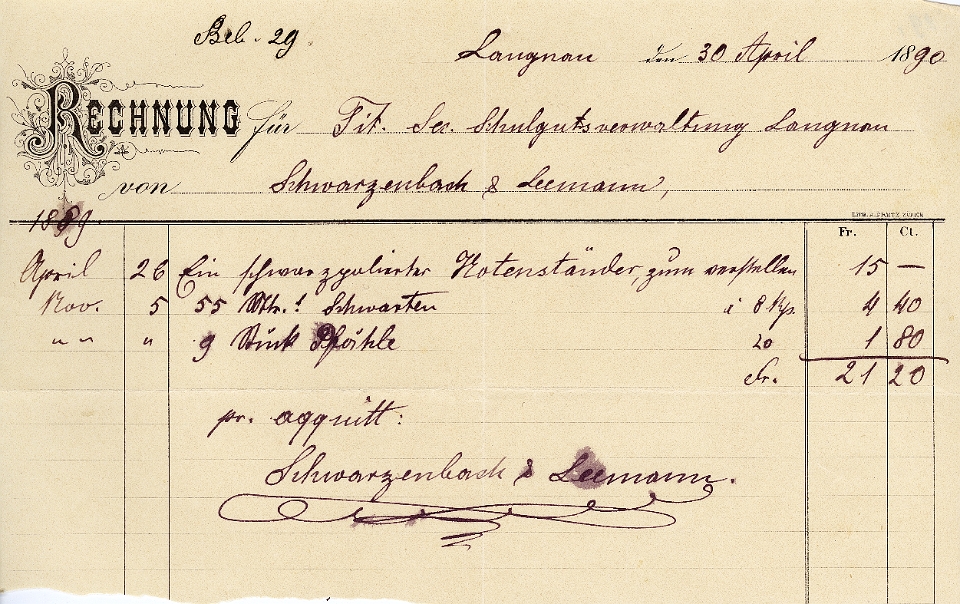 Beb. 29.
Langnau den 30 April 1890
RECHNUNG für Tit. Sec. Schulgutsverwaltung Langnau
von Schwarzenbach & Leemann,
1889.
Fr. Ct.
April 26 Ein schwarzpolierter Notenständer, zum verstellen 15 —
Nov. 5 55 Mtr. Schwarten à 8 Rp. 4 40
" " " 9 Stück Pfähle 20 1 80
Fr. 21 20
pr. aqquitt:
Schwarzenbach & Leemann.